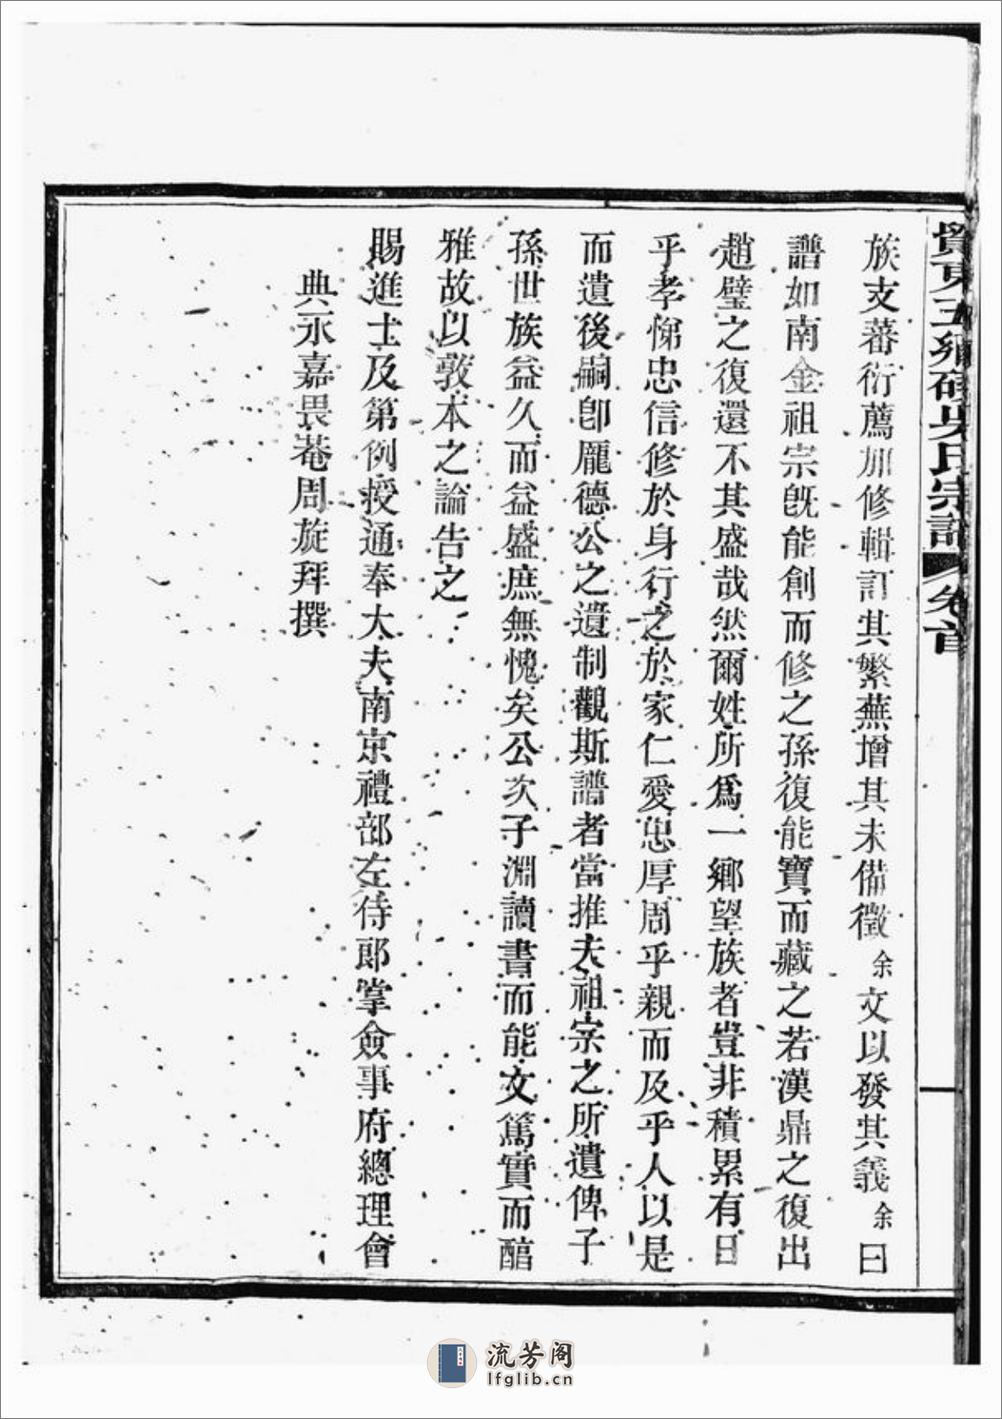 族支蕃衍薦加修輯訂其繁蕪增其未備徵余文以發其義余曰
譜如南金祖宗旣能創而修之孫復能寶而藏之若漢鼎之復出
趙璧之復還不其盛哉然爾姓所爲一鄉望族者豈非積累有日
乎孝悌忠信修於身行之於家仁愛忠厚周乎親而及乎人以是
而遺後嗣卽龐德公之遺制觀斯譜者當推夫祖宗之所遺俾子
孫世族益久而益盛庶無愧矣公次子淵讀書而能文篤實而醇
雅故以敦本之論告之
賜進士及第例授通奉大夫南京禮部左侍郎掌僉事府總理會
典永嘉畏菴周旋拜撰
貴東五鄉磧吳氏宗譜 卷首
流芳阁
lfglib.cn